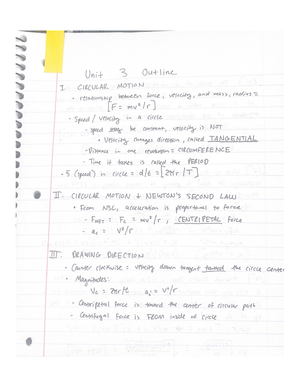 Unit 3 Outline
I. CIRCULAR MOTION
• relationship between force, velocity, and mass, radius =
[F = mv²/r]
• Speed / velocity in a circle
- speed may be constant, velocity is NOT
• Velocity changes direction, called TANGENTIAL
- Distance in one revolution = CIRCUMFERENCE
- Time it takes is called the PERIOD
• S (speed) in circle = d/t = [2πr / T]
II. CIRCULAR MOTION + NEWTON'S SECOND LAW
• From NSL, acceleration is proportional to force
- FNET = Fc = mv²/r, CENTRIPETAL force
- ac = v²/r
III. DRAWING DIRECTION
• Counter clockwise = velocity down tangent toward the circle center
• Magnitudes:
Vc = 2πr/t ac = V²/r
• Centripetal force is toward the center of circular path
• Centrifugal force is FROM inside of circle